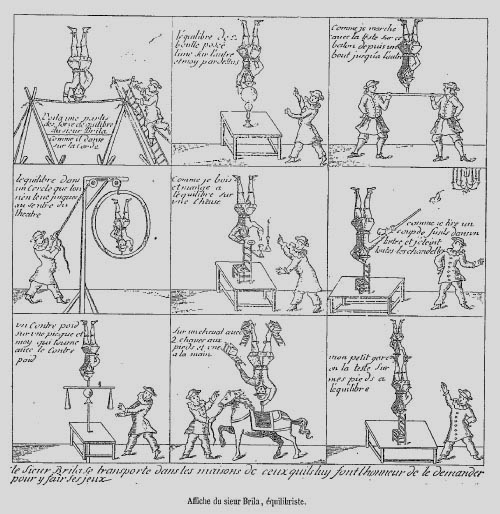 Voila une partie
des force déquilibre
du sieur Brila
Comme il danse
sur la Corde
léquilibre des 2
boulle posee
lune sur lautre
et moy par dessus
Comme je marche
avec la teste sur ce
baton depuis un
bout jusqua lautre
lequilibre dans
un Cercle que lon
tien leue jusques
au sentre du
theatre
Comme je bois
et mange a
léquilibre sur
une Cheise
comme je tire un
coup de fusils dans un
et jeteint
toutes les chandelles
un Contre poid
sur une picque et
moy qui tourne
avec le Contre
poid
Sur un cheual avec
2 chaues aux
pieds et une
a la main
mon petit garc
on la teste sur
mes pieds a
lequilibre
le Sieur Brila se transporte dans les maisons de ceux quils luy font lhonneur de le demander
pour y fair ses jeux
Affiche du sieur Brila, équilibriste.